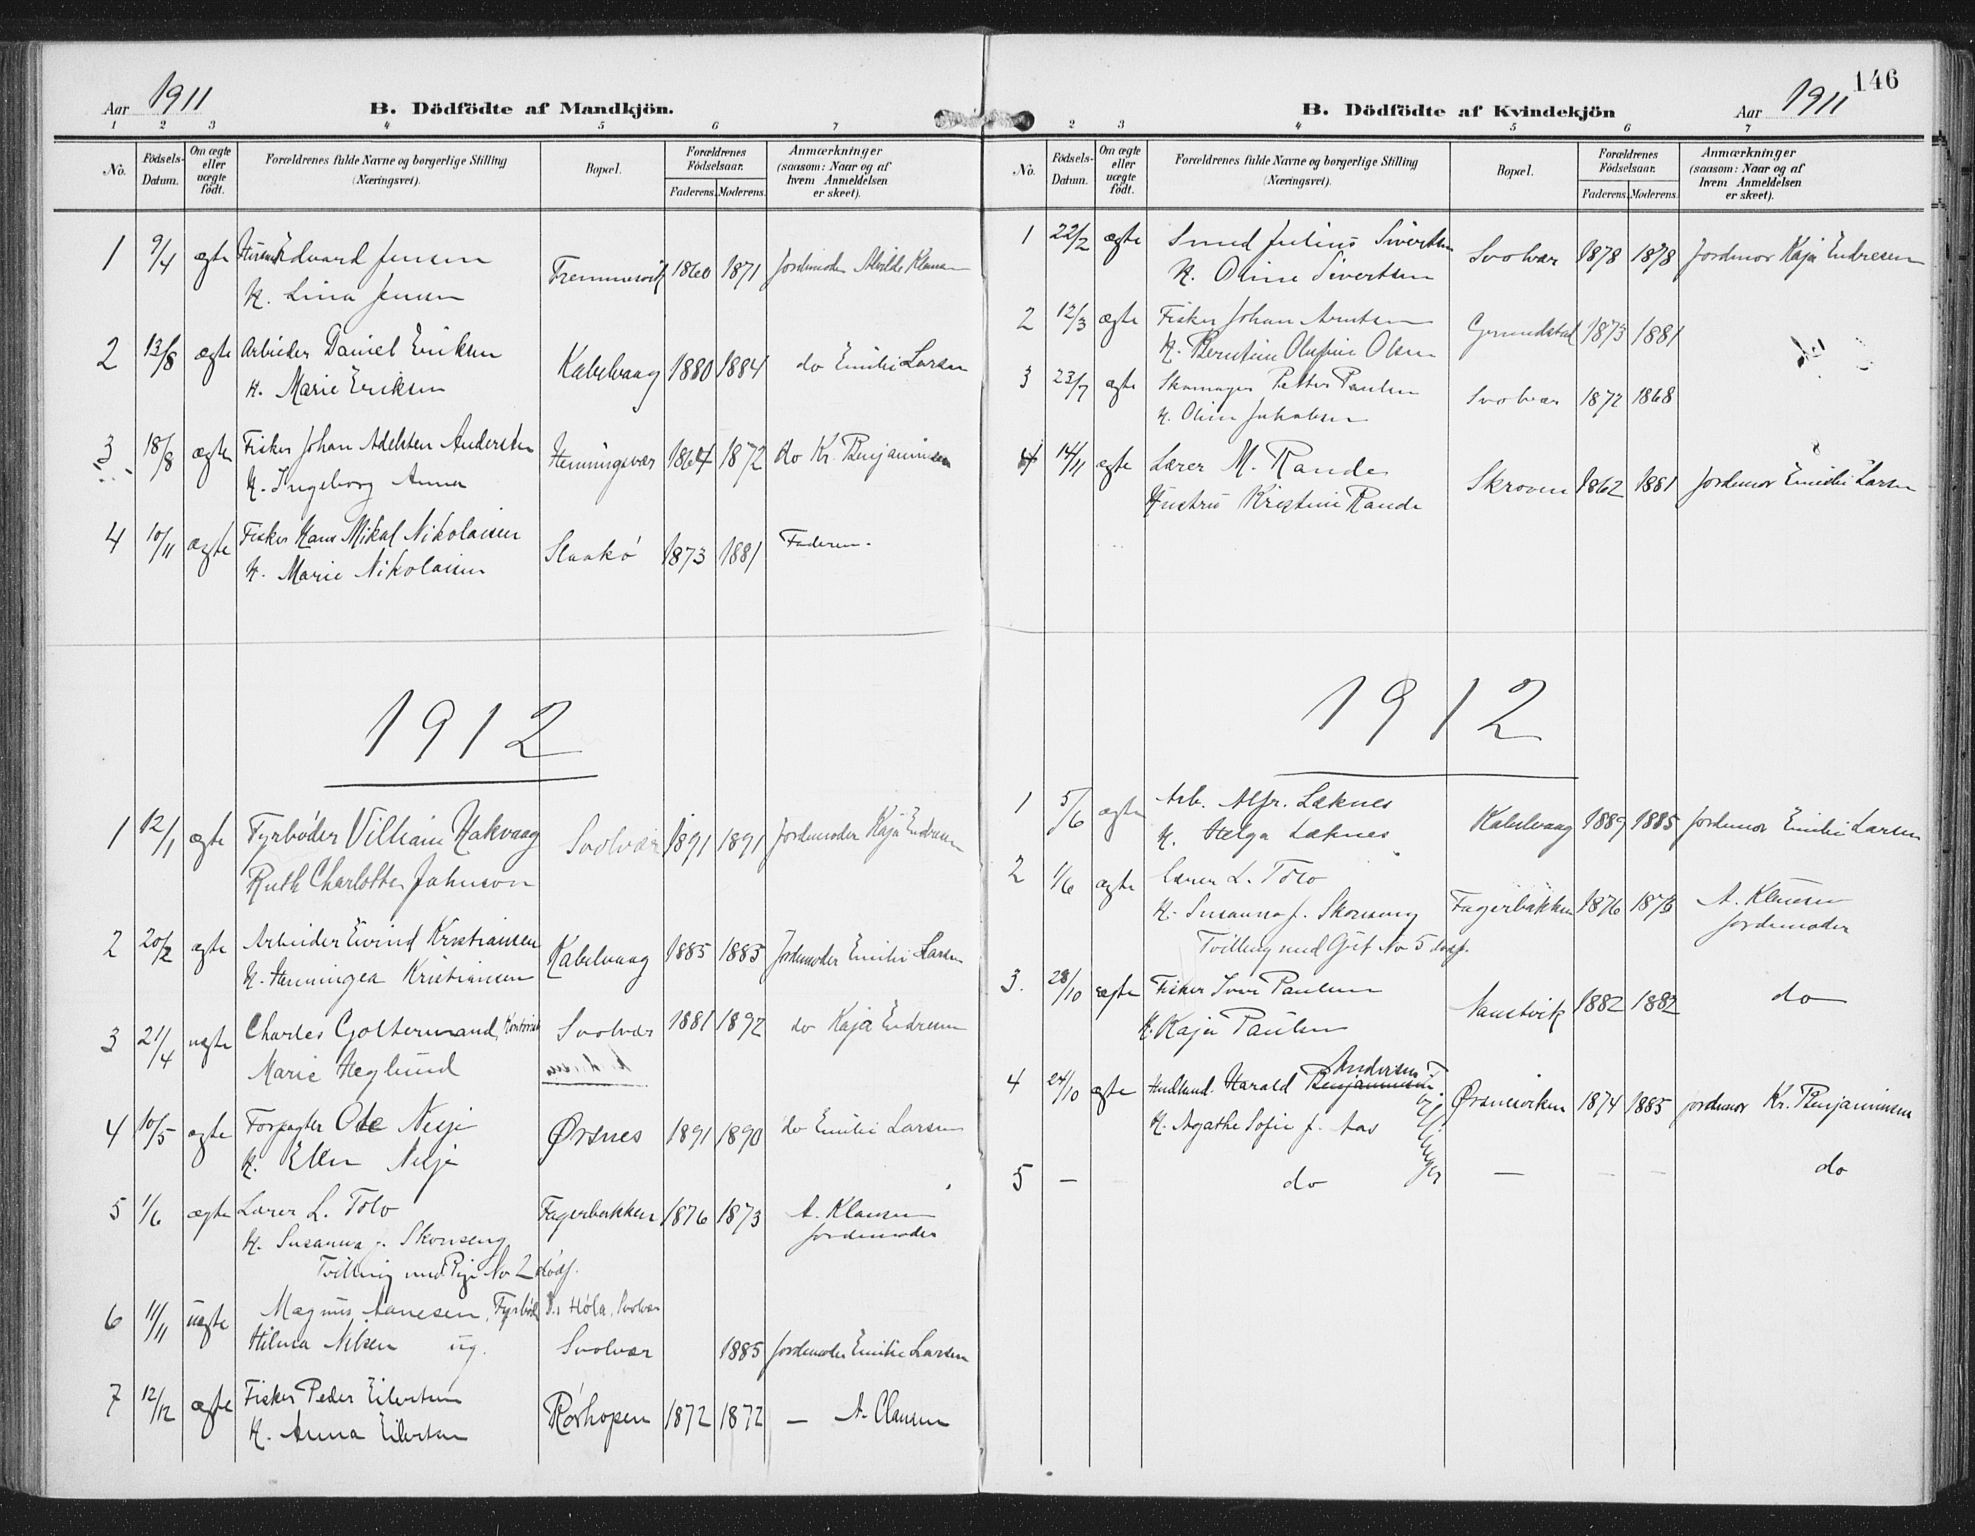 Aar 1911
B. Dödfödte af Mandkjön.
1 2 3 4 5 6 7
No.
Födsels-Datum.
Om ægte eller uægte født.
Forældrenes fulde Navne og borgerlige Stilling (Næringsvei).
Bopæl.
Forældrenes Födselsaar.
Faderens. Moderens.
Anmærkninger (saasom: Naar og af hvem Anmeldelsen er skeet).
1 9/4 ægte Edvard Jensen 1860 1871 Jordemoder
K. Lina Jensen
2 13/8 ægte Arbeider Daniel Eriksen Kabelvaag 1880 1884 do Emilie Larsen
K. Marie Eriksen
3 18/8 ægte Fisker Johan Adelsten Andersen Henningsvær 1864 1872 do Kr. Benjaminsen
K. Ingeborg Anna
4 10/11 ægte Fisker Hans Mikal Nikolaisen 1873 1881 Faderen.
K. Marie Nikolaisen
1912
1 12/1 ægte Fyrbøder Villiam Hakvaag Svolvær 1891 1891 Jordemoder Kaja Endresen
Ruth Charlotte Johnson
2 20/2 ægte Arbeider Eivind Kristiansen Kabelvaag 1885 1883 Jordemoder Emilie Larsen
K. Henningea Kristiansen
3 21/4 uægte Charles Goltermand, Kontorist Svolvær 1881 1892 do Kaja Endresen
Marie Heglund
4 10/5 ægte Forpagter Ole Nesje Ørsnes 1891 1890 do Emilie Larsen
K. Ellen Nesje
5 1/6 ægte Lærer L. Tolo Fagerbakken 1876 1873 A. Klausen
K. Susanna f. Skonseng Jordemoder
Tvilling med Pige No 2 dødf.
6 11/11 uægte Magnus Aanesen, Fyrbøder D/s Høla, Svolvær
Hilma Nilsen ug. Svolvær 1885 Jordemoder Emilie Larsen
7 12/12 ægte Fisker Peder Eilertsen Rørhopen 1872 1872 — A. Clausen
K. Anna Eilertsen
146
B. Dödfödte af Kvindekjön
Aar 1911
2 3 4 5 6 7
No.
Födsels-Datum.
Om ægte eller uægte født.
Forældrenes fulde Navne og borgerlige Stilling (Næringsvei).
Bopæl.
Forældrenes Födselsaar.
Faderens. Moderens.
Anmærkninger (saasom: Naar og af hvem Anmeldelsen er skeet).
1 22/2 ægte Smed Julius Sivertsen Svolvær 1878 1878 Jordemor Kaja Endresen
K. Oline Sivertsen
2 12/3 ægte Fisker Johan Arntsen Grundstad 1873 1881
K. Olufine Olsen
3 23/7 ægte Skomager Petter Paulsen Svolvær 1872 1868
K. Oline Jakobsen
4 14/11 ægte Lærer M. Rande Skroven 1862 1881 Jordemor Emilie Larsen
Hustru Kristine Rande
1912
1 5/6 ægte Arb. Alfr. Leknes Kabelvaag 1889 1885 Jordemor Emilie Larsen
K. Helga Leknes
2 1/6 ægte Lærer L. Tolo Fagerbakken 1876 1873 A. Klausen
K. Susanna f. Skonseng Jordemoder
Tvilling med Gut No 5 dødf.
3. 28/10 ægte Fisker Iver Paulsen Naustvik 1882 1882 do
K. Kaja Paulsen
4 24/10 ægte Handlend. Harald Benjaminsen Andersen Ørsnesviken 1874 1885 Jordemor Kr. Benjaminsen
K. Agathe Sofie f. Aas Tvillinger
5 — — do — — — do